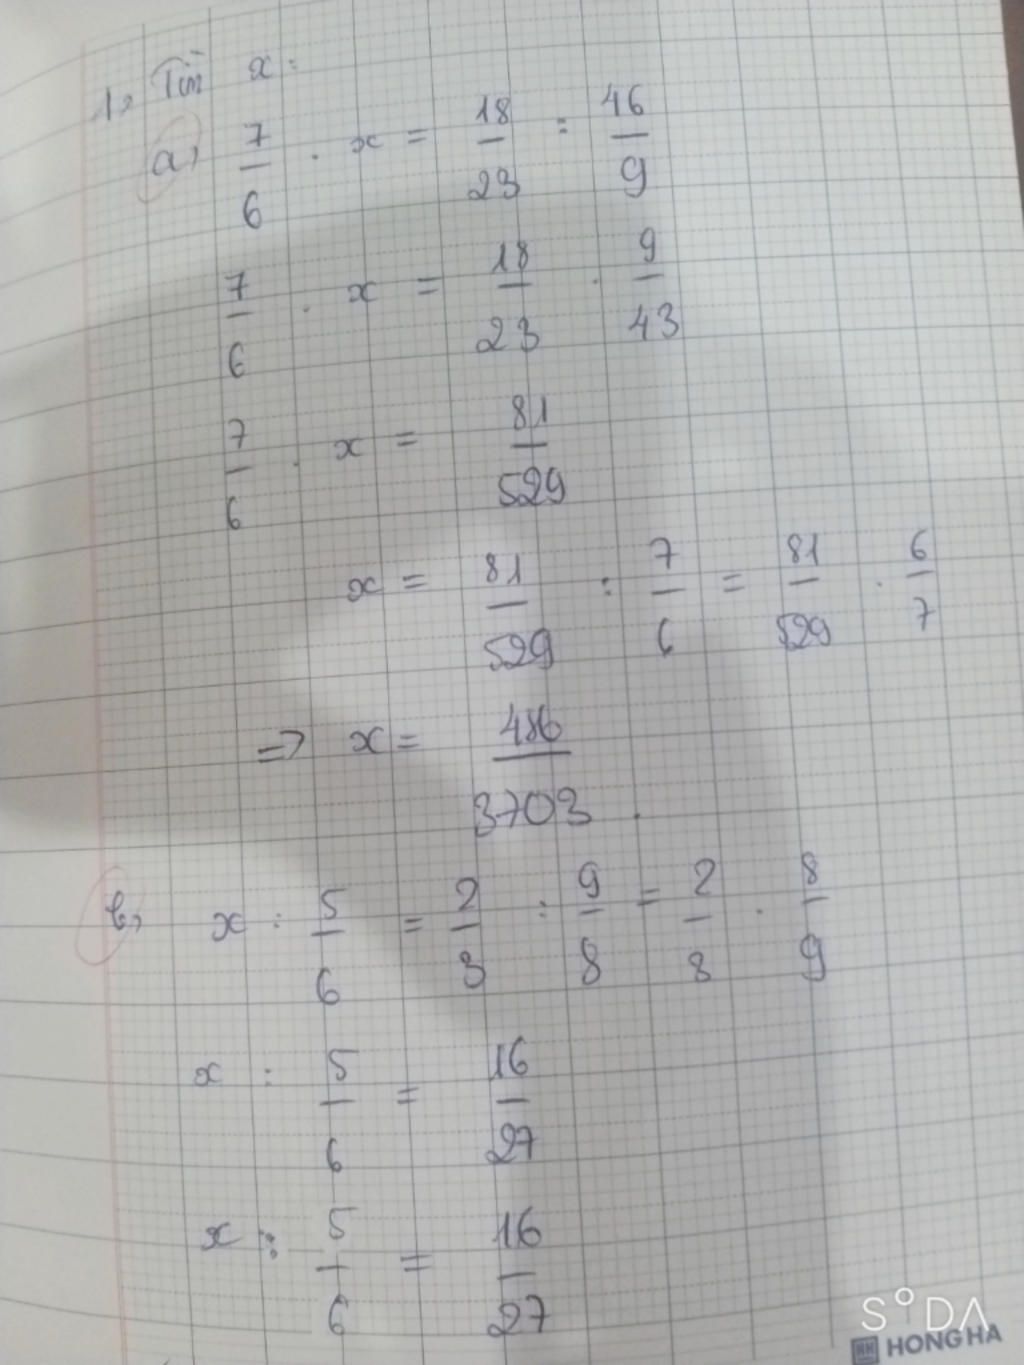 1, Tìm x:
a, 7/6 . x = 18/23 : 46/9
7/6 . x = 18/23 . 9/43
7/6 . x = 81/529
x = 81/529 : 7/6 = 81/529 . 6/7
=> x = 486/3703 .
b, x : 5/6 = 2/3 : 9/8 = 2/8 . 8/9
x : 5/6 = 16/27
x : 5/6 = 16/27
SODA
HH HONG HA